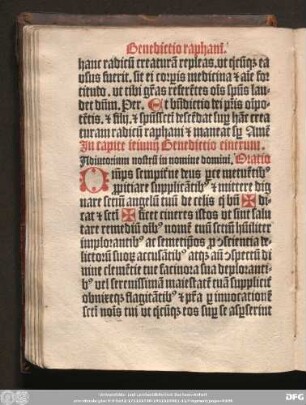 Benedictio raphani.
hanc radicũ creaturã repleas. ut q̃cũqȝ ea
usus fuerit. sit ei corporis medicina et aĩe for
titudo. ut tibi gr̃as referẽtes ols sp̃us lau
det dñm. Per. Et bñdictio dei pr̃is oĩpo
tẽtis. et filij. et sp̃ussc̃ti descẽdat sup hãc crea
turam radicũ raphani et maneat sp̃ Amẽ
In capite ieiunij Benedictio cinerum.
Adiutorium nostrũ in nomine domini. Oratio
Oĩps sempit̃ne deus parce metuẽtibꝰ
propiciare supplicãtibꝰ et mittere dig
nare sctm̃ angelũ tuũ de celis q̃ bñ✠di
cat et scti✠ficet cineres istos ut sint salu
tare remediũ oĩbꝰ nomẽ tuũ sctm̃ hũiliter
implorantibꝰ ac semetip̃os p ꝯscientia de
lictorũ suoꝝ accusãtibꝰ atqȝ añ ꝯspectũ di
uine clemẽtie tue facinora sua deplorantibꝰ
vel serenissimam maiestatẽ tuã supplicit̃
obnixeqȝ flagitãtibꝰ et p̃sta p inuocationẽ
sctĩ nom̃s tui ut q̃cũqȝ eos sup se asp̃serint